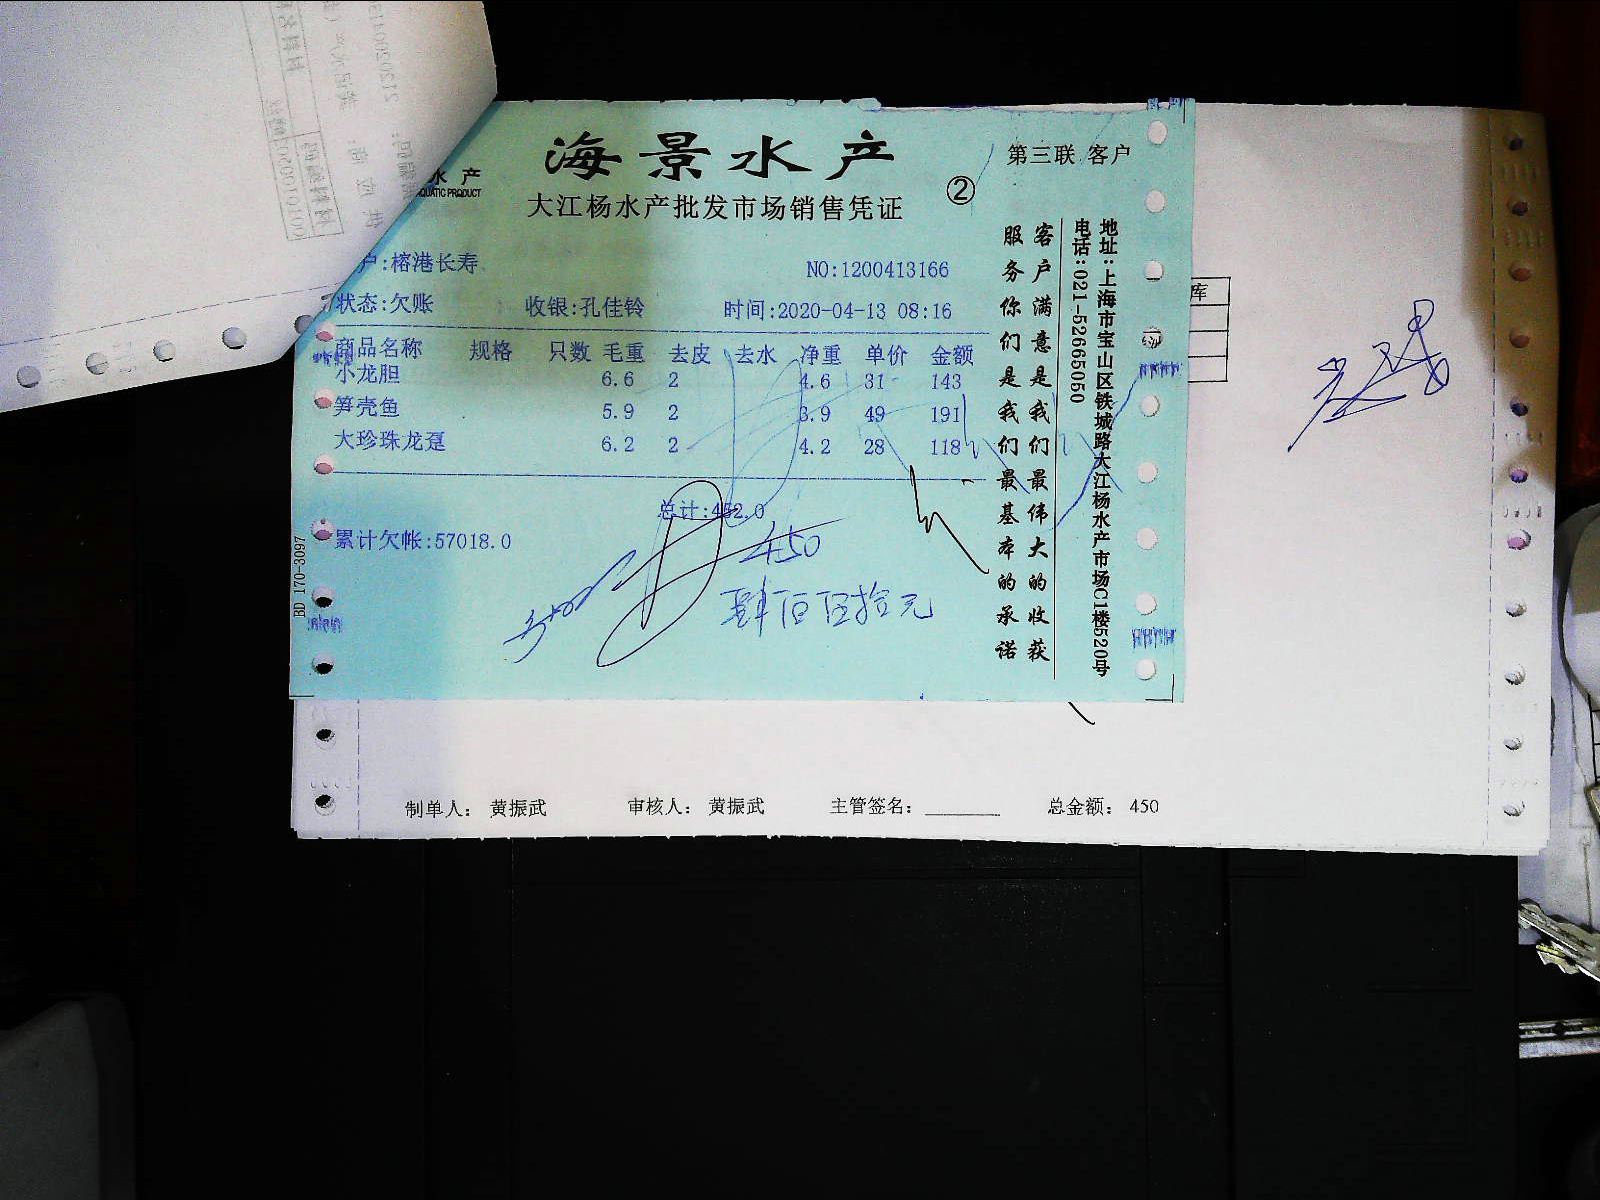 海景水产
水产
AQUATIC PRODUCT
大江杨水产批发市场销售凭证
②
第三联 客户
户:榕港长寿
NO:1200413166
状态:欠账 收银:孔佳铃 时间:2020-04-13 08:16
商品名称 规格 只数 毛重 去皮 去水 净重 单价 金额
小龙胆 6.6 2 4.6 31 143
笋壳鱼 5.9 2 3.9 49 191
大珍珠龙趸 6.2 2 4.2 28 118
总计:452.0
累计欠帐:57018.0
450
肆佰伍拾元
BD 170-3097
客户满意是我们最伟大的收获
服务你们是我们最基本的承诺
地址:上海市宝山区铁城路大江杨水产市场C1楼520号
电话:021-52665050
库
制单人: 黄振武 审核人: 黄振武 主管签名: 总金额: 450